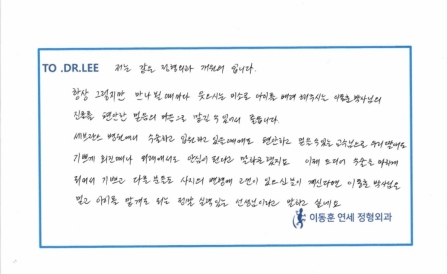 TO .DR.LEE 저는 같은 정형외과 까지 입니다.
항상 그렇지만 만나 뵐 때마다 웃으시는 미소로 아이를 대해 주시는 이동훈 박사님의
진료를 편안한 믿음의 마음으로 맡길 수 있어서 좋습니다.
세브란스 병원에서 수술하고 입원하고 있을때에도 편안하고 믿을 수 있는 교수님으로
기쁘게 회진때나 외래에서도 안심이 된다고 말하곤 했지요 이제 드디어 수술을 마치게
되어서 기쁘고 다른 분들도 사지의 변형에 고민이 있으신 분이 계신다면 이동훈 박사님을
믿고 아이를 맡겨도 되는 정말 실력있는 선생님이라고 말하고 싶네요
이동훈 연세 정형외과